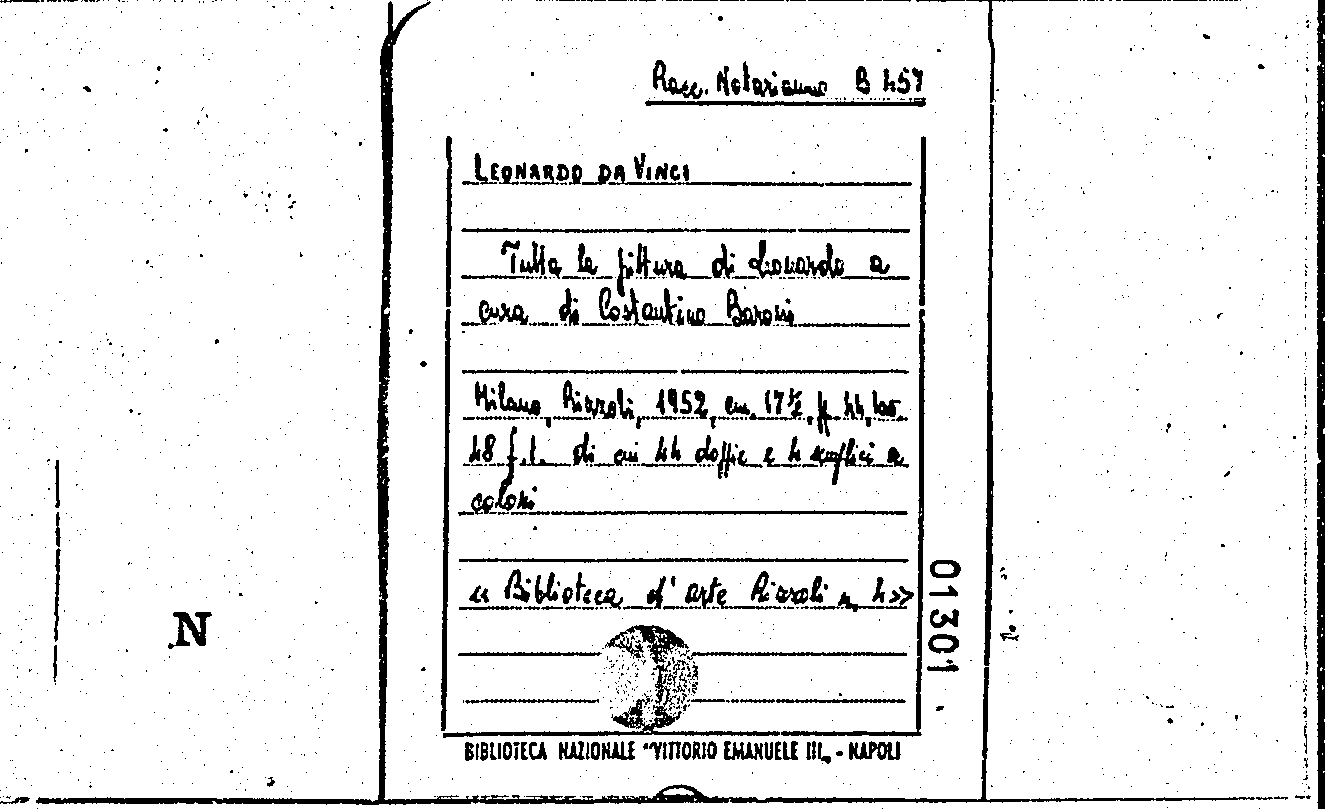 Racc. Notarianno B 457
LEONARDO DA VINCI
Tutta la pittura di Leonardo a
cura di Costantino Baroni
Milano, Rizzoli, 1952, cm. 17½, p. 44, tav.
48 f.t. di cui 44 doppie e 4 semplici a
colori
« Biblioteca d'arte Rizzoli n. 4»
01301
N
BIBLIOTECA NAZIONALE "VITTORIO EMANUELE III„ - NAPOLI